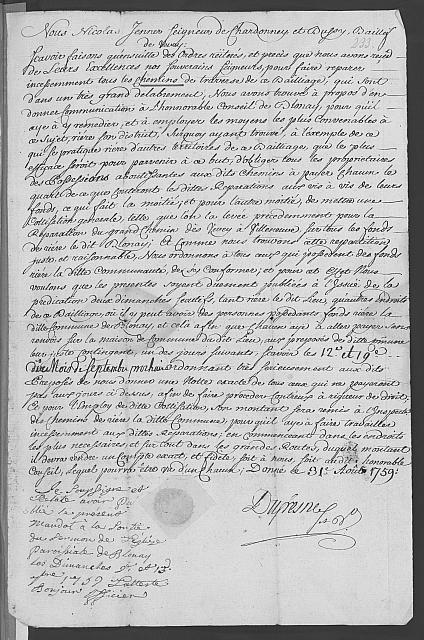 Nous Nicolas Jenner Seigneur de Chardonney et Bussy, Baillif
de Vevay;
Scavoir faisons qu'ensuitte des Ordres réiterés, et précis que nous avons reçeu
de Leurs Excellences nos Souverains Seigneurs, pour faire reparer
incessemment tous les Chemins de traverse de ce Bailliage, qui sont
dans un très grand delabrement, Nous avons trouvé à propos d'en
donner Communication à l'honorable Conseil de Blonay, pour qu'il
aye à y remedier, et à employer les moyens les plus Convenables à
ce Sujet, riere son district, Surquoy ayant trouvé, à l'exemple de ce
qui se pratique riere d'autres territoires de ce Bailliage, que le plus
efficace seroit pour parvenir à ce but, d'obliger tous les proprietaires
des Possessions aboutissantes aux dits Chemins à payer Chacun le
quart de ce que Coutteront les dittes Reparations aux vis à vis de leurs
fonds, ce qui fait la moitié; et pour l'autre moitié, de mettre une
Cottisation generale, telle que l'on la levée précedemment pour la
Reparation du grand Chemin dès Vevey à Villeneuve, sur tous les fonds
de riere le dit Blonay; et Comme nous trouvons cette repartition
juste et raisonnable, Nous ordonnons à tous ceux qui possedent des fonds
riere la ditte Communauté, de s'y Conformer; et pour cet effet Nous
voulons que les presentes soyent duement publiées à l'Issüe de la
prédication deux dimanches Consecutifs, tant riere le dit Lieu, qu'autres endroits
de ce Bailliage, où il y peut avoir des personnes possedants fonds riere la
ditte Commune de Blonay, et cela afin que Chacun aye à aller payer sans
renvois sur la maison de Commune du dit Lieu, aux preposés de ditte Commune
leur Contingent, un des jours suivants, scavoir les 12e. et 19e.
du Mois de Septembre prochain ordonnant très serieusement aux dits
Preposés de nous donner une Notte exacte de tous ceux qui ne payeront
pas aux jours cy dessus, afin de faire proceder Contr'eux à rigueur de droit.
Et pour l'Employ de ditte Cottisation, Son montant sera remis à l'Inspecteur
des Chemins de riere la ditte Commune, pour qu'il aye à faire travailler
incessemment aux dittes Reparations; en commenceant dans les endroits
les plus necessaires, et sur tout dans les grandes Routes, duquel montant
il devra rendre un Compte exact, et fidele, soit à nous, soit au dit honorable
Conseil, lequel pourra être vû d'un Chacun; Donné ce 31e. Août 1759.
Je Soussigné et
atteste avoir Pu
blié le présent
Mandat à la Sortie
du Sermon de l'Eglise
paroissiale de Blonay
Les Dimanches et
1759 L'atteste
Bonjour Officier